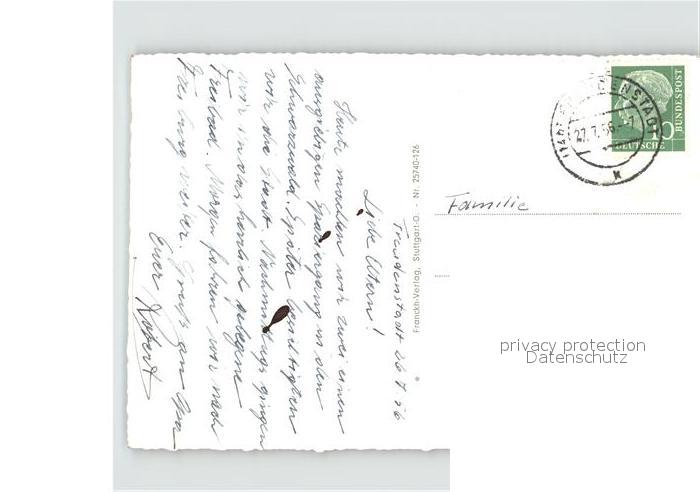 Freudenstadt 26.7.56
Liebe Eltern!
Heute machten wir zwei einen
ausgiebigen Spaziergang in den
Schwarzwald. Später besichtigten
wir die Stadt. Nachmittags gingen
wir in das herrlich gelegene
Freibad. Morgen fahren wir nach
Freiburg weiter. Gruß an Opa
Euer Robert
Franckh-Verlag, Stuttgart-O. - Nr. 25740-126
Familie
DEUTSCHE
BUNDESPOST
10
27.7.56
privacy protection
Datenschutz